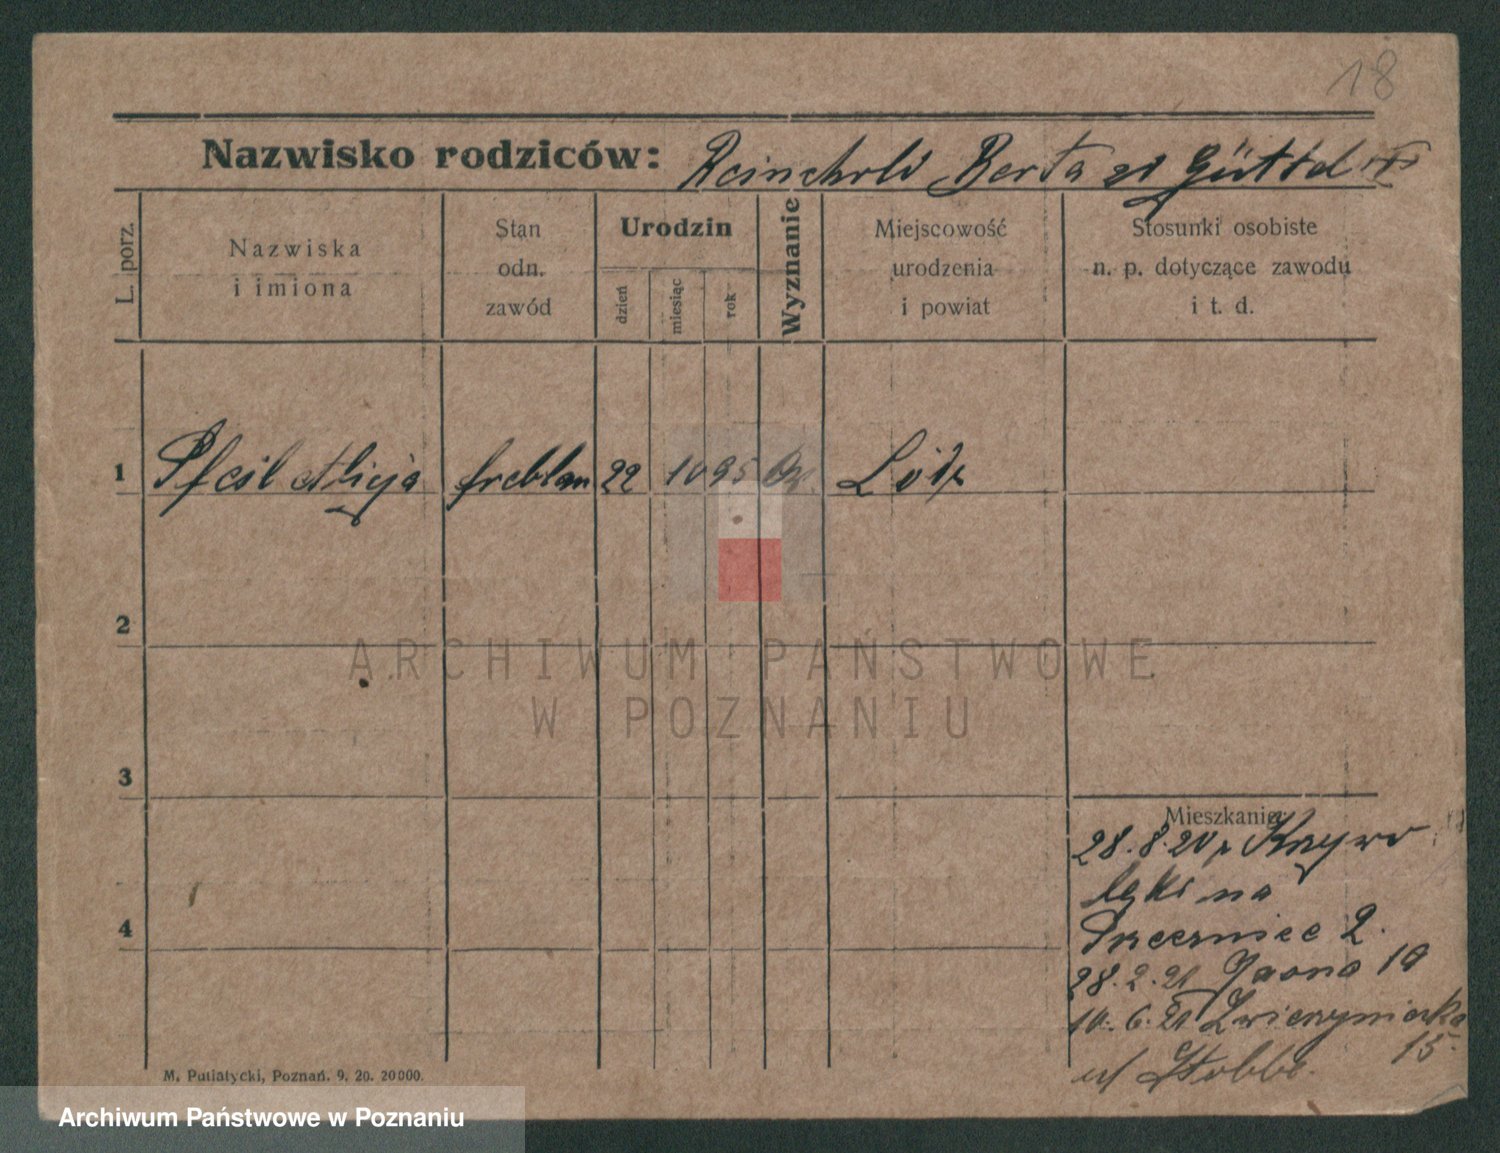 18
Nazwisko rodziców: Berta
L. porz.
Nazwiska
i imiona
Stan
odn.
zawód
Urodzin
dzień
miesiąc
rok
Wyznanie
Miejscowość
urodzenia
i powiat
Stosunki osobiste
n. p. dotyczące zawodu
i t. d.
1 Pfeil Alicja 22 10 95 Łódź
2
3
4
Mieszkanie
28.8.20
na
2.
28.2.21 Jasna 19
10.6.21 Zwierzyniecka
15.
M. Putiatycki, Poznań. 9. 20. 20000.
ARCHIWUM PAŃSTWOWE
W POZNANIU
Archiwum Państwowe w Poznaniu